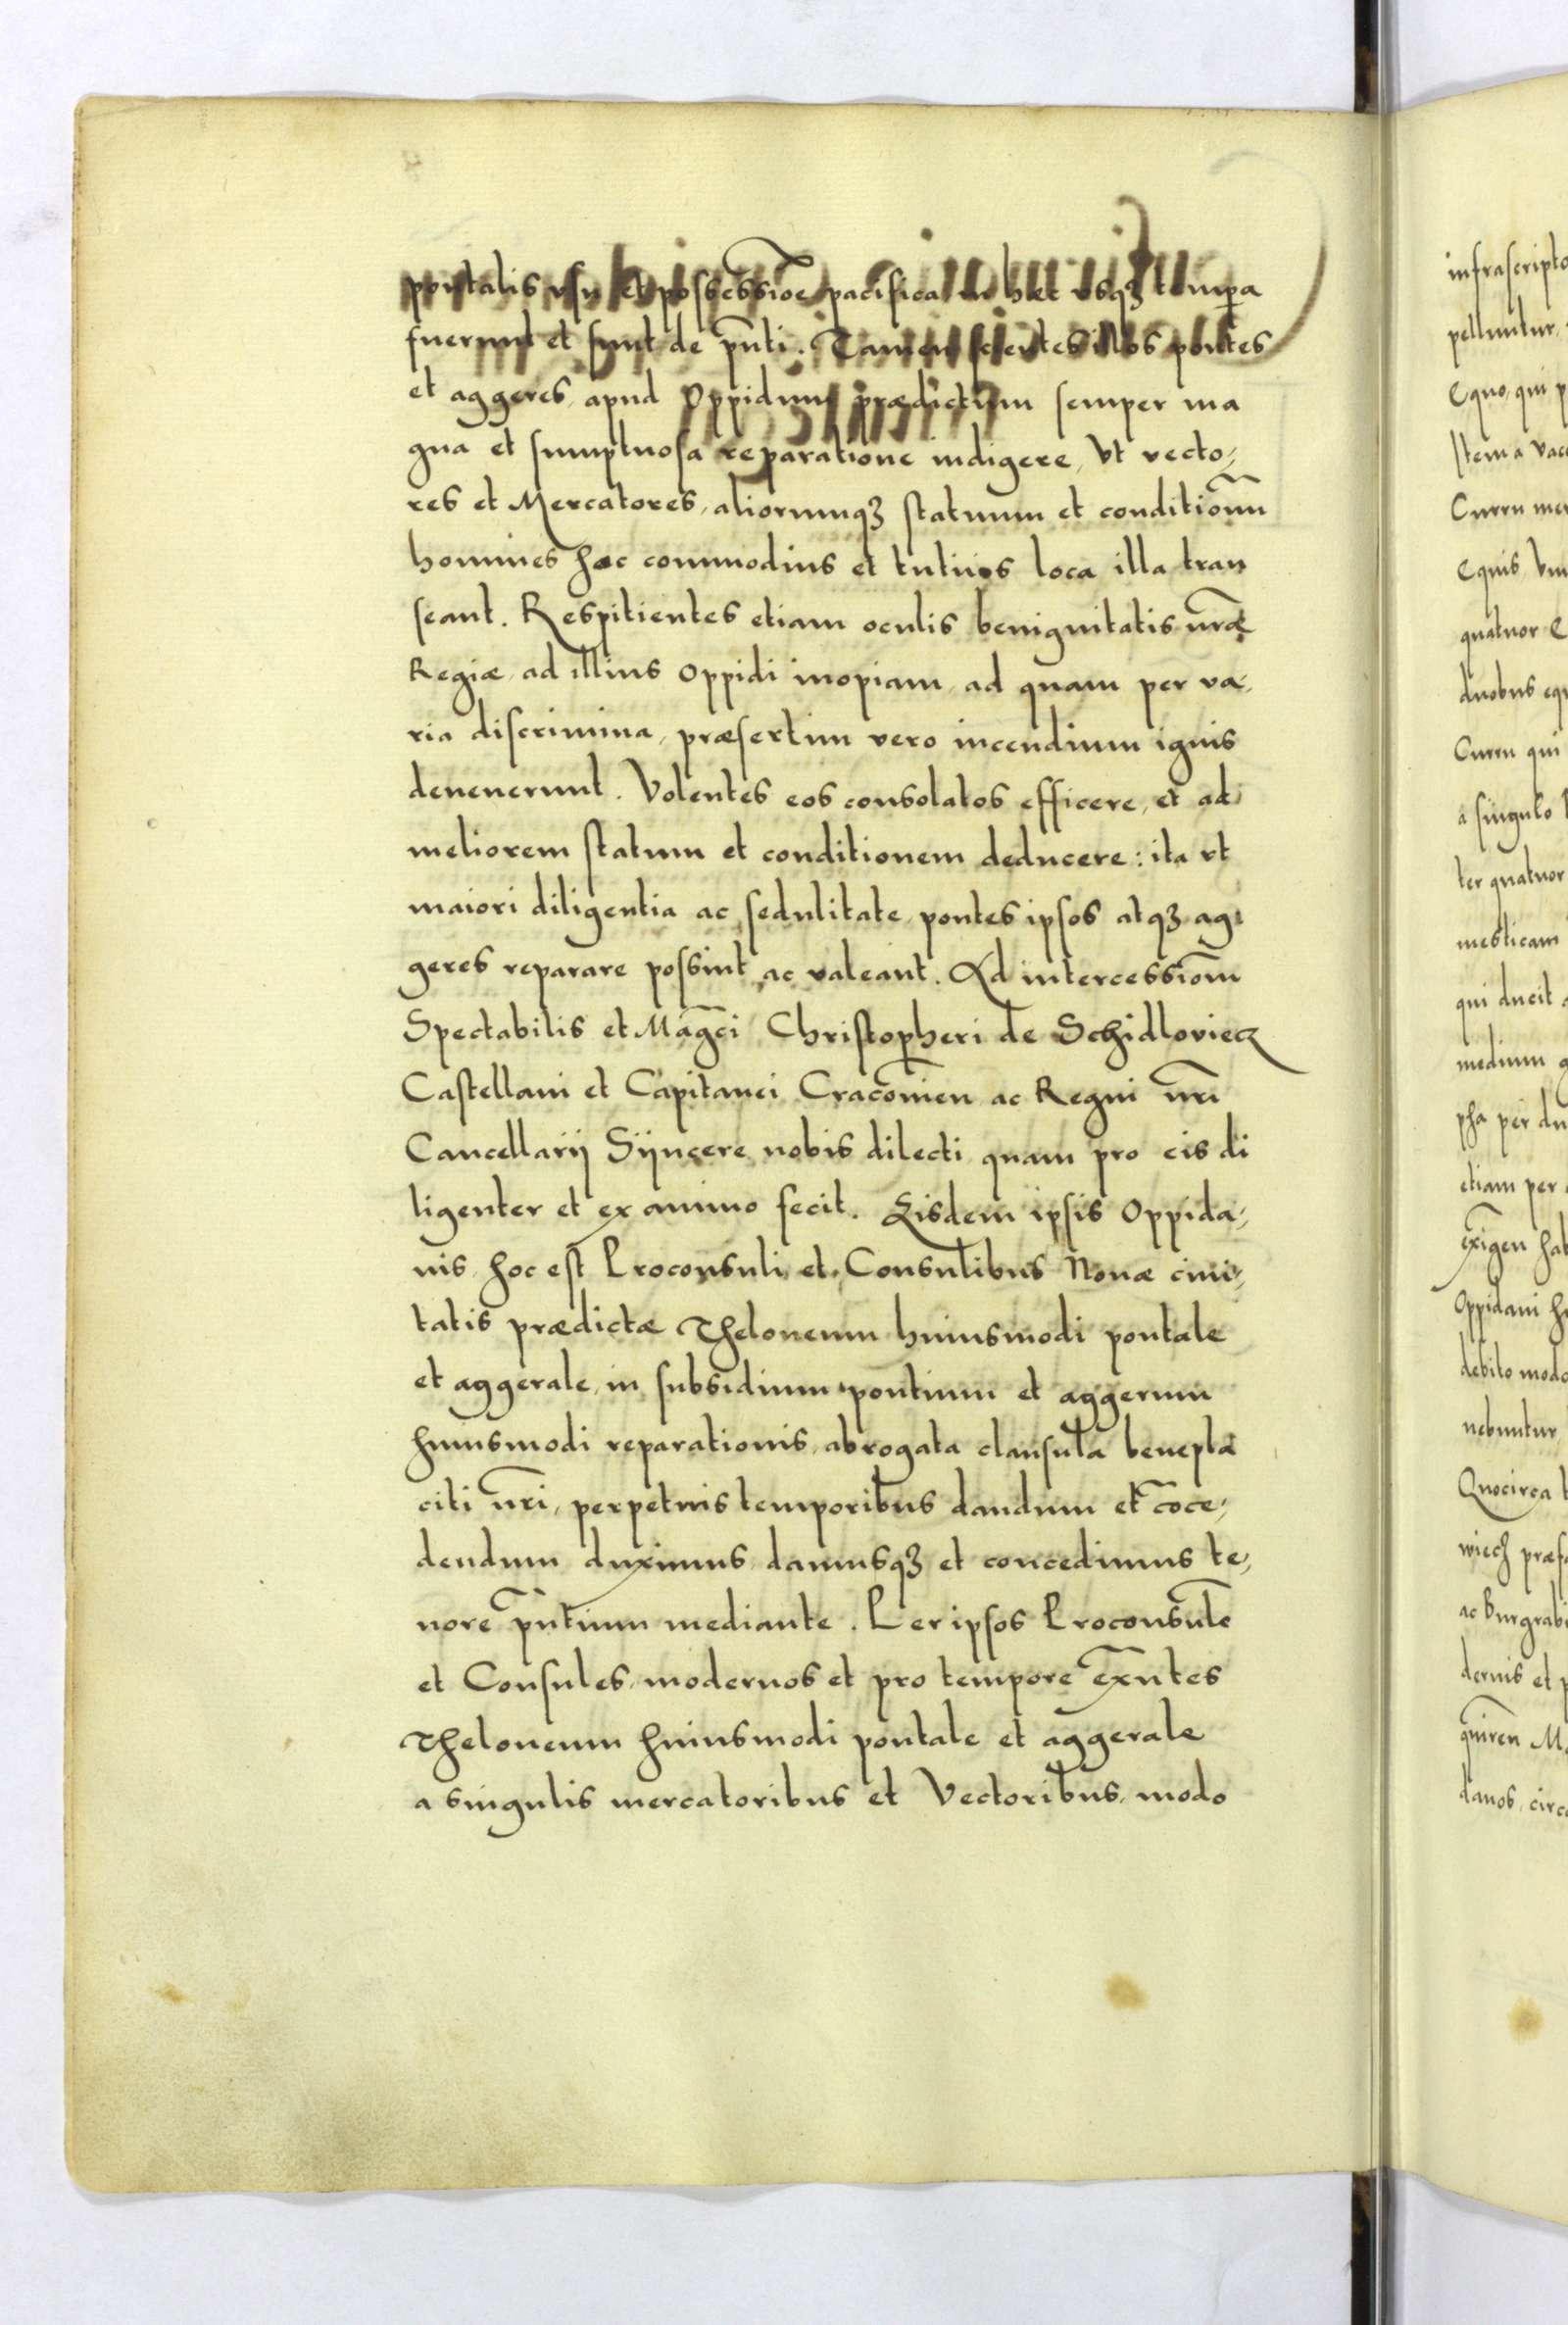 pontalis vsu et possessioe pacifica in hec vsqꝫ tempa
fuerunt et sunt de pnti. Tamen scientes illos pontes
et aggeres, apud Oppidum prædictum semper ma
gna et sumptuosa reparatione indigere, Vt vecto,
res et Mercatores, aliorumqꝫ statuum et conditionu
homines hac commodius et tutius loca illa tran
seant. Respitientes etiam oculis benignitatis nræ
Regiæ, ad illius Oppidi inopiam, ad quam per va,
ria discrimina, præsertim vero incendium ignis
deuenerunt. Volentes eos consolatos efficere, et ad
meliorem statum et conditionem deducere: ita vt
maiori diligentia ac sedulitate pontes ipsos atqꝫ ag,
geres reparare possint ac valeant. Ad intercessiom
Spectabilis et Magci Christopheri de Schidloviecz
Castellani et Capitanei Cracouien ac Regni nri
Cancellarij Sijncere nobis dilecti quam pro eis di
ligenter et ex animo fecit. Eisdem ipsis Oppida,
nis hoc est Proconsuli et Consulibus Nouæ ciui,
tatis prædictæ Theloneum huiusmodi pontale
et aggerale, in subsidium pontium et aggerum
huiusmodi reparationis, abrogata clausula benepla
citi nri, perpetuis temporibus dandum et coce,
dendum duximus, damusqꝫ et concedimus te,
nore pntium mediante. Per ipsos Proconsule
et Consules, modernos et pro tempore exntes
Theloneum huiusmodi pontale et aggerale
a singulis mercatoribus et Vectoribus, modo
infrascripto
pelluntur,
Equo, qui p
Item a vacc
Curru mer
Equis Vn
quatuor E
duobus equ
Curru qui
a singulo
ter quatuor
mesticam
qui ducit
medium g
pha per du
etiam per
exigen hab
Oppidani h
debito modo
nebuntur
Quocirca
wiech præf
ac Burgrabi
dernis et p
quiren Ma
danos, circa